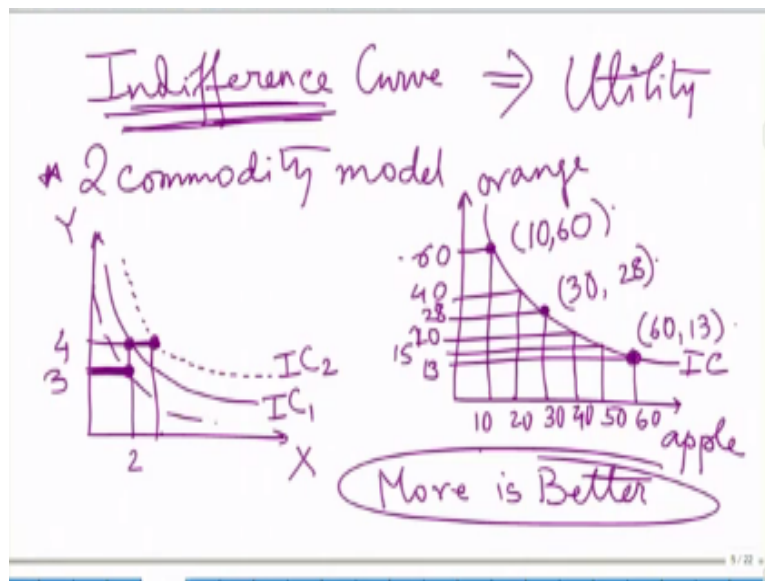 Indifference Curve ⇒ Utility
* 2 commodity model
Y
4
3
2
X
IC2
IC1
orange
60
40
28
20
15
13
(10,60)
(30, 28)
(60,13)
IC
10 20 30 40 50 60
apple
More is Better
5/22